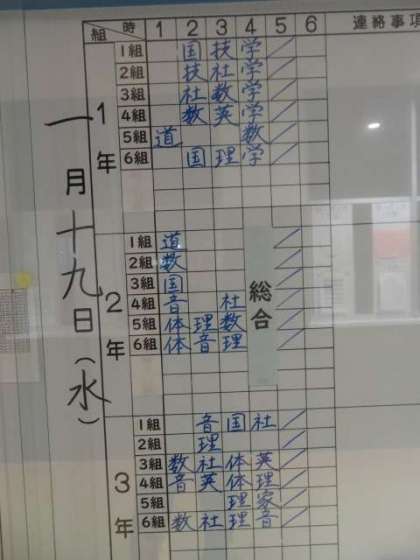 組 時 1 2 3 4 5 6 連絡事項
一月十九日(水)
1年
1組 国 技 学
2組 技 社 学
3組 社 数 学
4組 数 英 学
5組 道 数
6組 国 理 学
2年
総合
1組 道
2組 数
3組 国
4組 音 社
5組 体 理 数
6組 体 音 理
3年
1組 音 国 社
2組 理
3組 数 社 体 英
4組 音 英 体 理
5組 理 家
6組 数 社 理 音